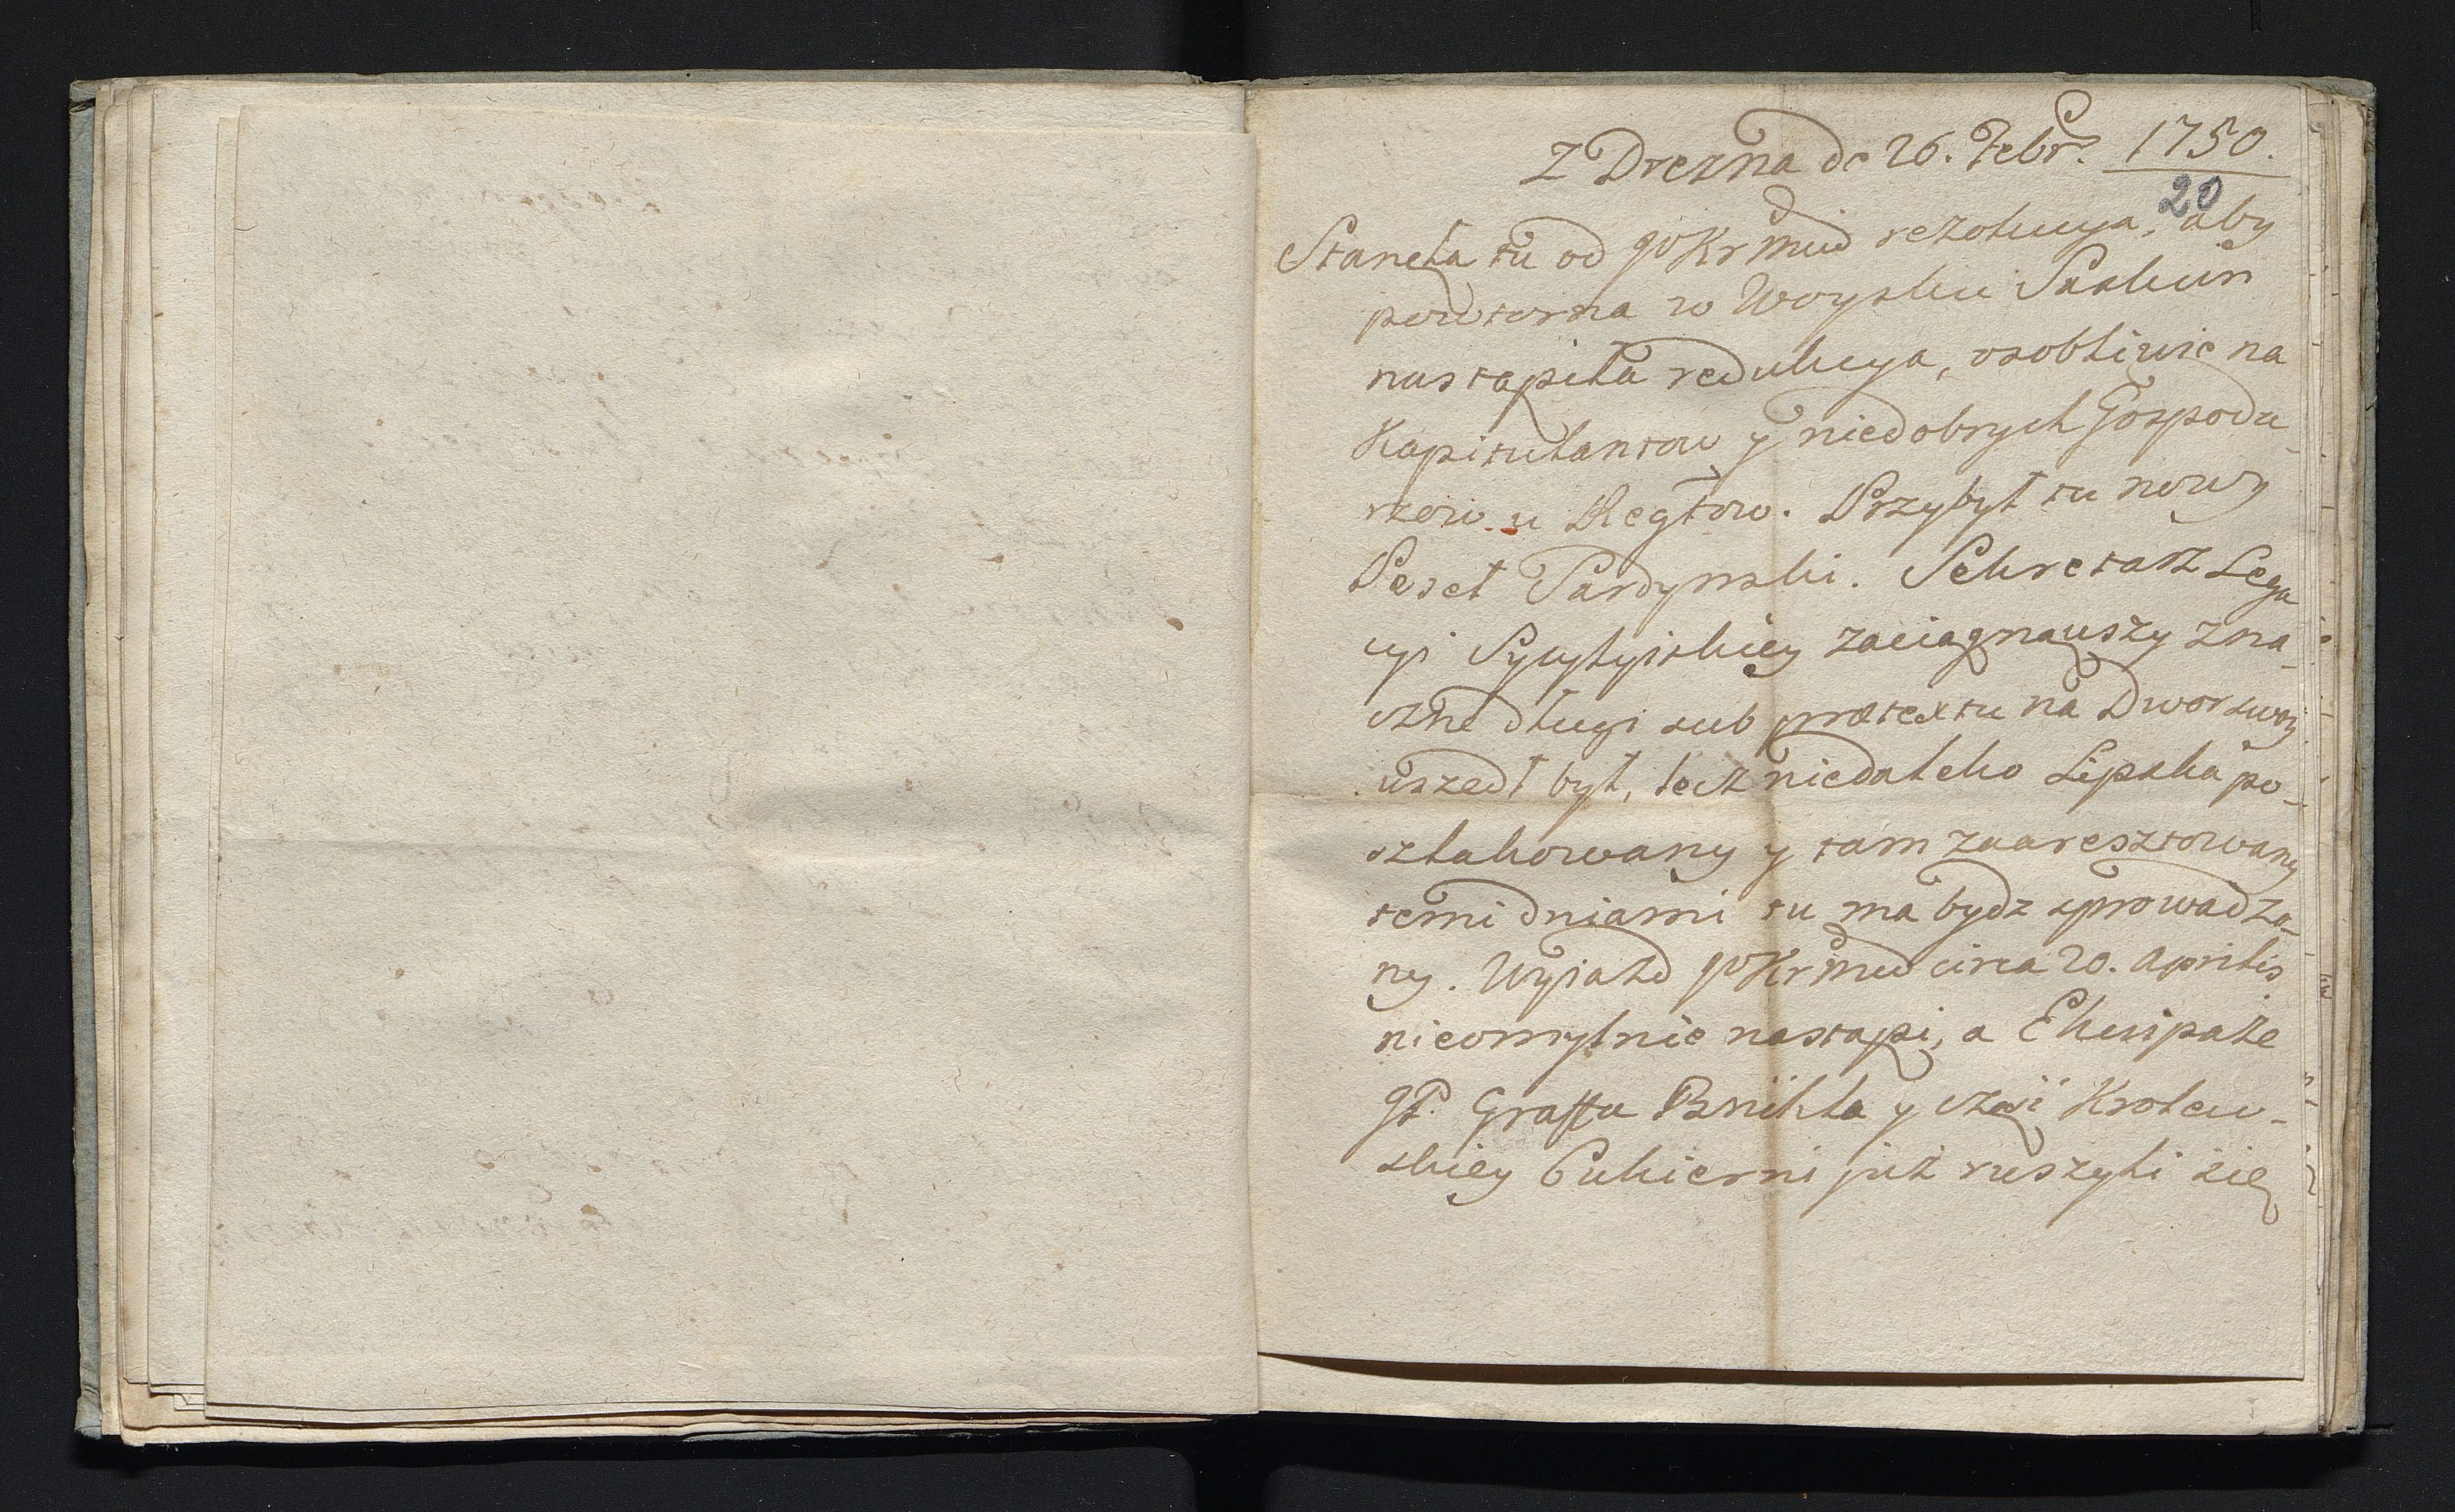 Z Drezna de 26. Febr. 1750.
20
Stanęła tu od JoKrMci rezolucya, aby
powtorna w Woysku Saskim
nastąpiła redukcya, osobliwie na
Kapitulantow y niedobrych Gospoda-
rzow u Regtow. Przybył tu nowy
Poseł Sardynski. Sekretarz Lega
cyi Sycylyiskiey zaciągnąwszy zna-
czne długi sub prætextu na Dwor swoy
uszedł był, lecz niedaleko Lipska po-
szlakowany y tam zaaresztowany
temi dniami tu ma bydz sprowadzo-
ny. Wyiazd JoKrMci circa 20. Aprilis
nieomylnie nastąpi, a Ekwipaże
JP. Graffa Brühla y część Krolew-
skiey Cukierni już ruszyli się